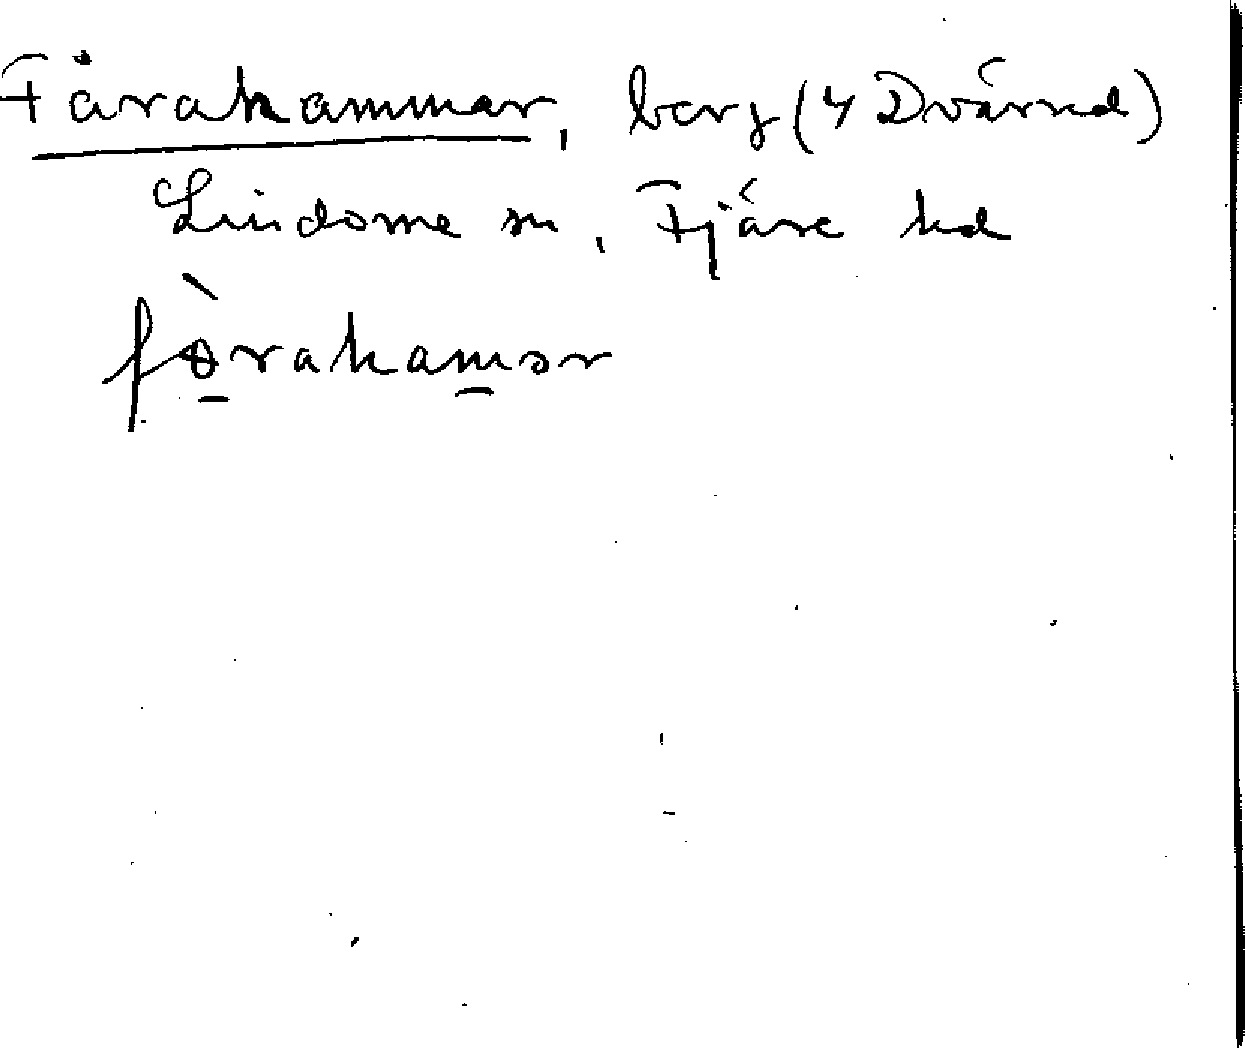 Fårakammar, berg (4 Dvärred)
Lindome sn, Fjäre hd
fòrakamər